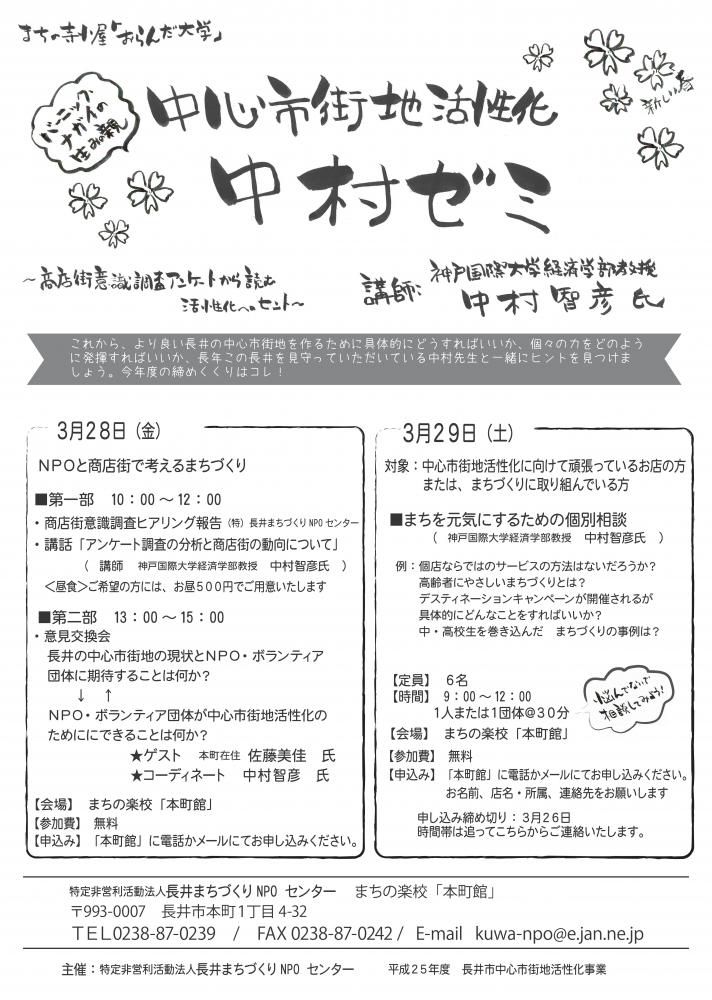 まちの寺小屋「おらんだ大学」
新しい春
ナガイの
中心市街地活性化
中村ゼミ
～商店街意識調査アンケートから読む
活性化へのヒント～
講師：神戸国際大学経済学部教授
中村智彦氏
これから、より良い長井の中心市街地を作るために具体的にどうすればいいか、個々の力をどのよう
に発揮すればいいか、長年この長井を見守っていただいている中村先生と一緒にヒントを見つけま
しょう。今年度の締めくくりはコレ！
3月28日（金）
ＮＰＯと商店街で考えるまちづくり
■第一部　10：00～12：00
・商店街意識調査ヒアリング報告（特）長井まちづくりNPOセンター
・講話「アンケート調査の分析と商店街の動向について」
（　講師　神戸国際大学経済学部教授　中村智彦氏　）
＜昼食＞ご希望の方には、お昼５００円でご用意いたします
■第二部　13：00～15：00
・意見交換会
長井の中心市街地の現状とＮＰＯ・ボランティア
団体に期待することは何か？
↓　↑
ＮＰＯ・ボランティア団体が中心市街地活性化の
ためににできることは何か？
★ゲスト　本町在住　佐藤美佳　氏
★コーディネート　中村智彦　氏
【会場】　まちの楽校「本町館」
【参加費】　無料
【申込み】「本町館」に電話かメールにてお申し込みください。
3月29日（土）
対象：中心市街地活性化に向けて頑張っているお店の方
または、まちづくりに取り組んでいる方
■まちを元気にするための個別相談
（　神戸国際大学経済学部教授　中村智彦氏　）
例：個店ならではのサービスの方法はないだろうか？
高齢者にやさしいまちづくりとは？
デスティネーションキャンペーンが開催されるが
具体的にどんなことをすればいいか？
中・高校生を巻き込んだ　まちづくりの事例は？
【定員】　6名
【時間】　9：00～12：00
1人または1団体＠３０分
悩んでないで
相談してみよう！
【会場】　まちの楽校「本町館」
【参加費】　無料
【申込み】「本町館」に電話かメールにてお申し込みください。
お名前、店名・所属、連絡先をお願いします
申し込み締め切り：3月26日
時間帯は追ってこちらからご連絡いたします。
特定非営利活動法人長井まちづくりNPO センター　まちの楽校「本町館」
〒993-0007　長井市本町1丁目4-32
ＴＥＬ0238-87-0239　/　FAX 0238-87-0242 /　E-mail　kuwa-npo@e.jan.ne.jp
主催：特定非営利活動法人長井まちづくりNPO センター　平成２５年度　長井市中心市街地活性化事業